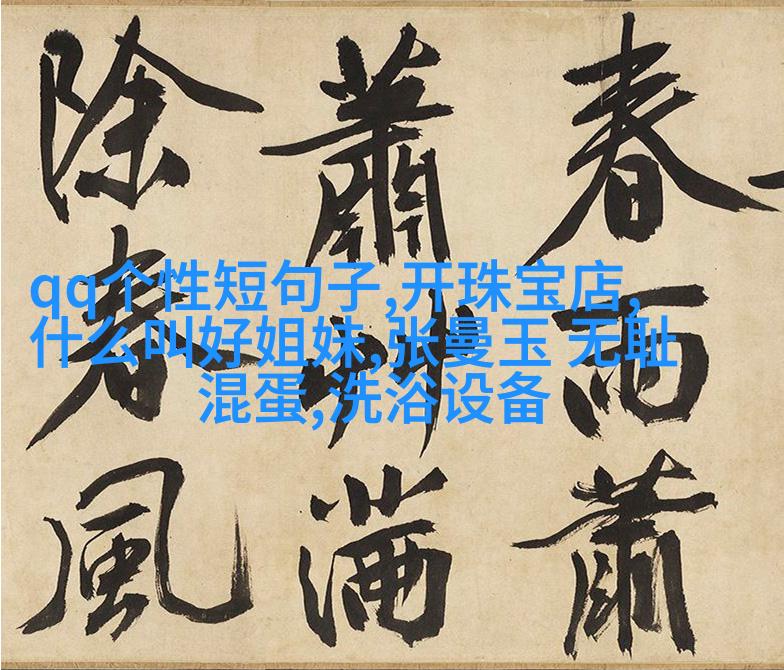 春雨蕭
蕭艸滿
除春風
qq个性短句子,开珠宝店,
什么叫好姐妹,张曼玉 无耻
混蛋,洗浴设备